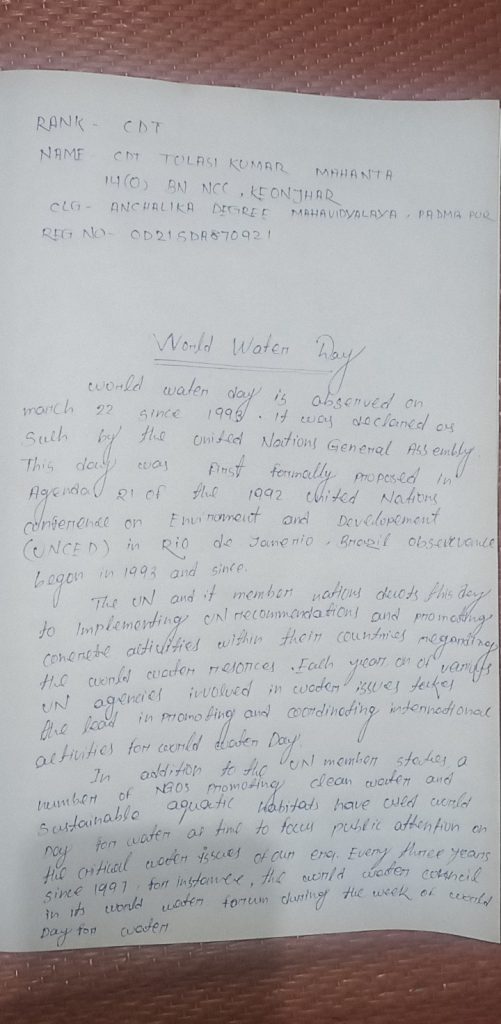 RANK - CDT
NAME CDT TULASI KUMAR MAHANTA
14(O) BN NCC, KEONJHAR
CLG - ANCHALIKA DEGREE MAHAVIDYALAYA, PADMAPUR
REG NO - OD21SDA870921
World Water Day
world water day is observed on
march 22 since 1993. it was declared as
Such by the united Nations General Assembly.
This day was First formally proposed in
Agenda 21 of the 1992 United Nations
conference on Environment and Developement
(UNCED) in Rio de Janerio, Brazil observance
began in 1993 and since.
The UN and it member nations this day
to Implementing UN recommendations and promoting
concrete activities within their countries regarding
the world water resorces. Each year on of various
UN agencies involved in water issues takes
the lead in promoting and coordinating international
activities for world water Day.
In addition to the UN member states, a
number of NGOS promoting clean water and
Sustainable aquatic Habitats have used world
Day for water as time to focus public attention on
the critical water issues of our era. Every three years
since 1997, for instance, the world water council
in its world water forum during the week of world
Day for water